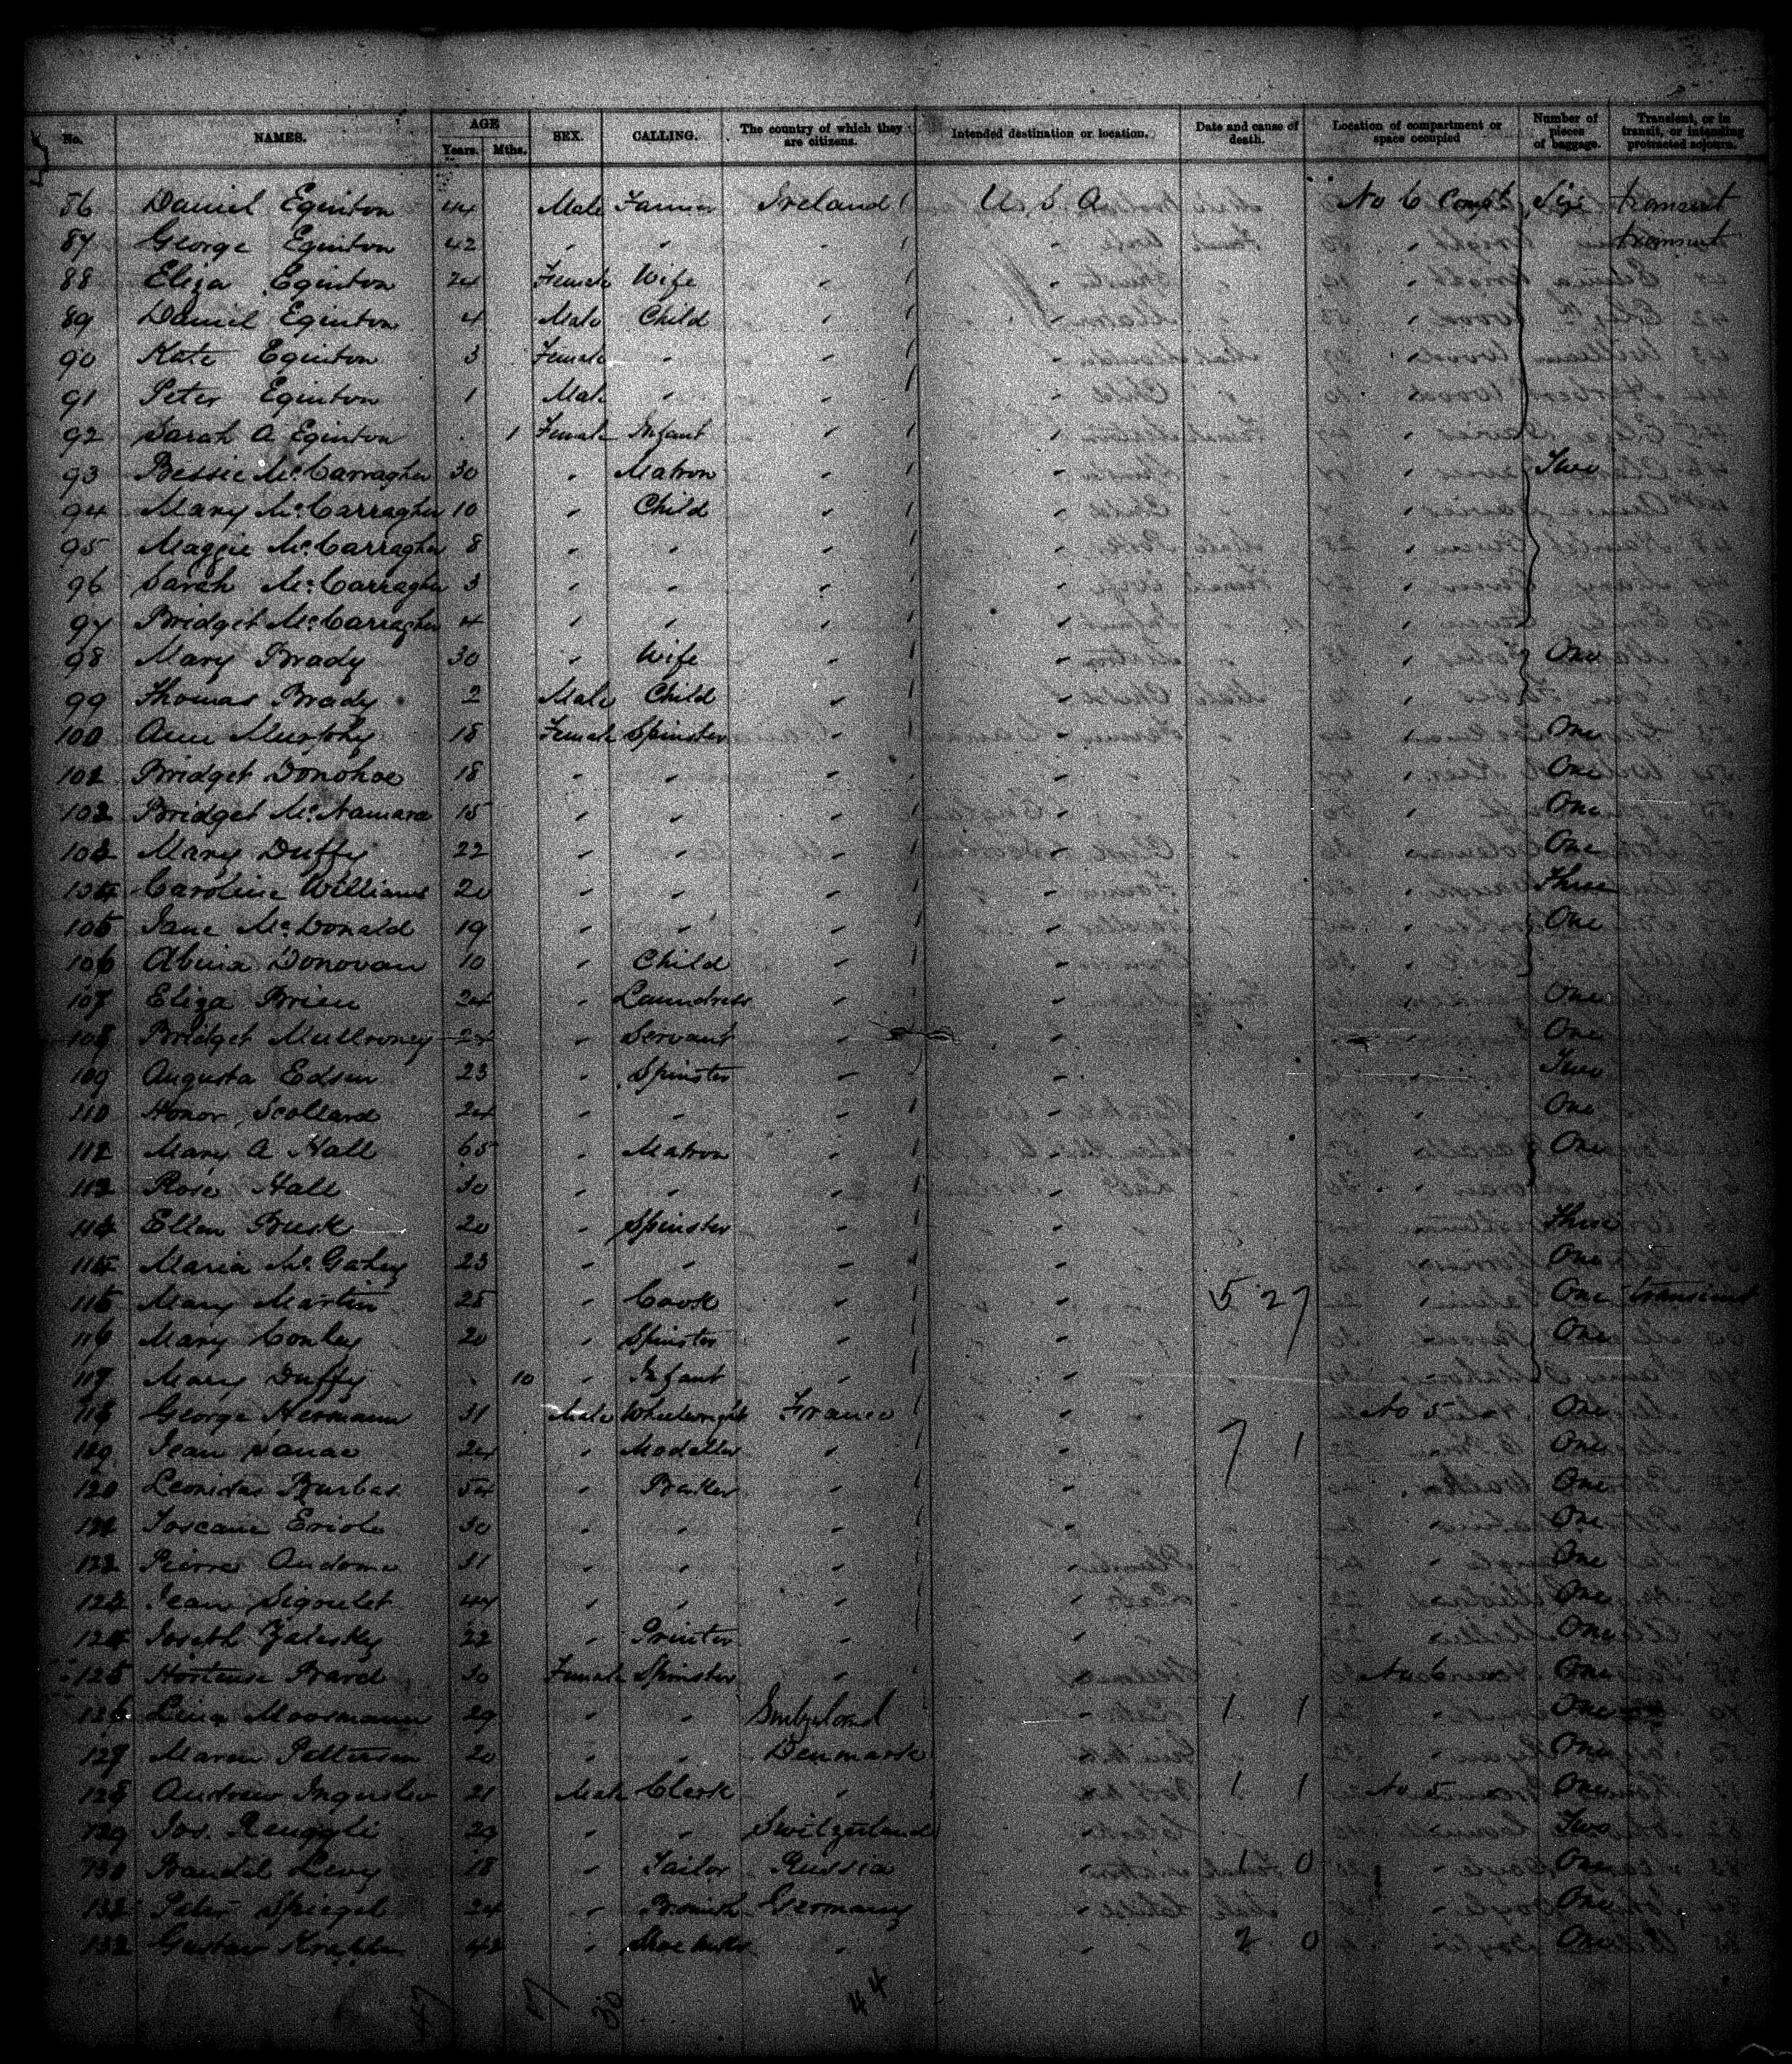 No. NAMES. AGE Years. Mths. SEX. CALLING. The country of which they are citizens. Intended destination or location. Date and cause of death. Location of compartment or space occupied Number of pieces of baggage. Transient, or in transit, or intending protracted sojourn.
86 Daniel Eginton 44 Male Farmer Ireland U.S.A No 6 Compt Six transient
87 George Eginton 42 " " " " transient
88 Eliza Eginton 24 Female Wife " "
89 Daniel Eginton 4 Male Child " "
90 Kate Eginton 3 Female " " "
91 Peter Eginton 1 Male " " "
92 Sarah A Eginton 1 Female Infant " "
93 Bessie McCarragher 30 " Matron " " Two
94 Mary McCarragher 10 " Child " "
95 Maggie McCarragher 8 " " " "
96 Sarah McCarragher 3 " " " "
97 Bridget McCarragher 4 " " " "
98 Mary Brady 30 " Wife " " One
99 Thomas Brady 2 Male Child " "
100 Ann Murphy 18 Female Spinster " " One
101 Bridget Donohoe 18 " " " " One
102 Bridget McNamara 15 " " " " One
103 Mary Duffy 22 " " " " One
104 Caroline Williams 20 " " " " Three
105 Jane McDonald 19 " " " " One
106 Abina Donovan 10 " Child " "
107 Eliza Brien 24 " Laundress " " One
108 Bridget Mullroney 24 " Servant " " One
109 Augusta Edsin 23 " Spinster " " Two
110 Honor Scollard 24 " " " " One
111 Mary A Hall 65 " Matron " " One
112 Rose Hall 30 " " " "
113 Ellen Busk 20 " Spinster " " Three
114 Maria McGahey 23 " " " " One
115 Mary Martin 25 " Cook " " 5 27 One transient
116 Mary Conley 20 " Spinster " " One
117 Mary Duffy 10 " Infant " "
118 George Hermann 31 Male Wheelwright France " No 5 One
119 Jean 24 " Modeller " " 7 1 One
120 Leonidas Burbas 54 " Baker " " One
121 Toscane Eriole 30 " " " " One
122 Pierre Andome 31 " " " " One
123 Jean Sigoulet 44 " " " " One
124 Joseph Zalesky 22 " Printer " " One
125 Hortense Brard 30 Female Spinster " " No 6 One
126 Lina Moosmann 29 " " Switzerland " 1 1 One
127 Maren Pettersen 20 " " Denmark " One
128 Andrew 21 Male Clerk " " 1 1 No 5 One
129 Jos. Renggli 29 " " Switzerland " Two
130 Levy 18 " Tailor Russia " 1 0 One
131 Peter Spiegel 24 " B.smith Germany " One
132 Gustav 42 " Shoe maker " " 2 0 One
47 17 30 44